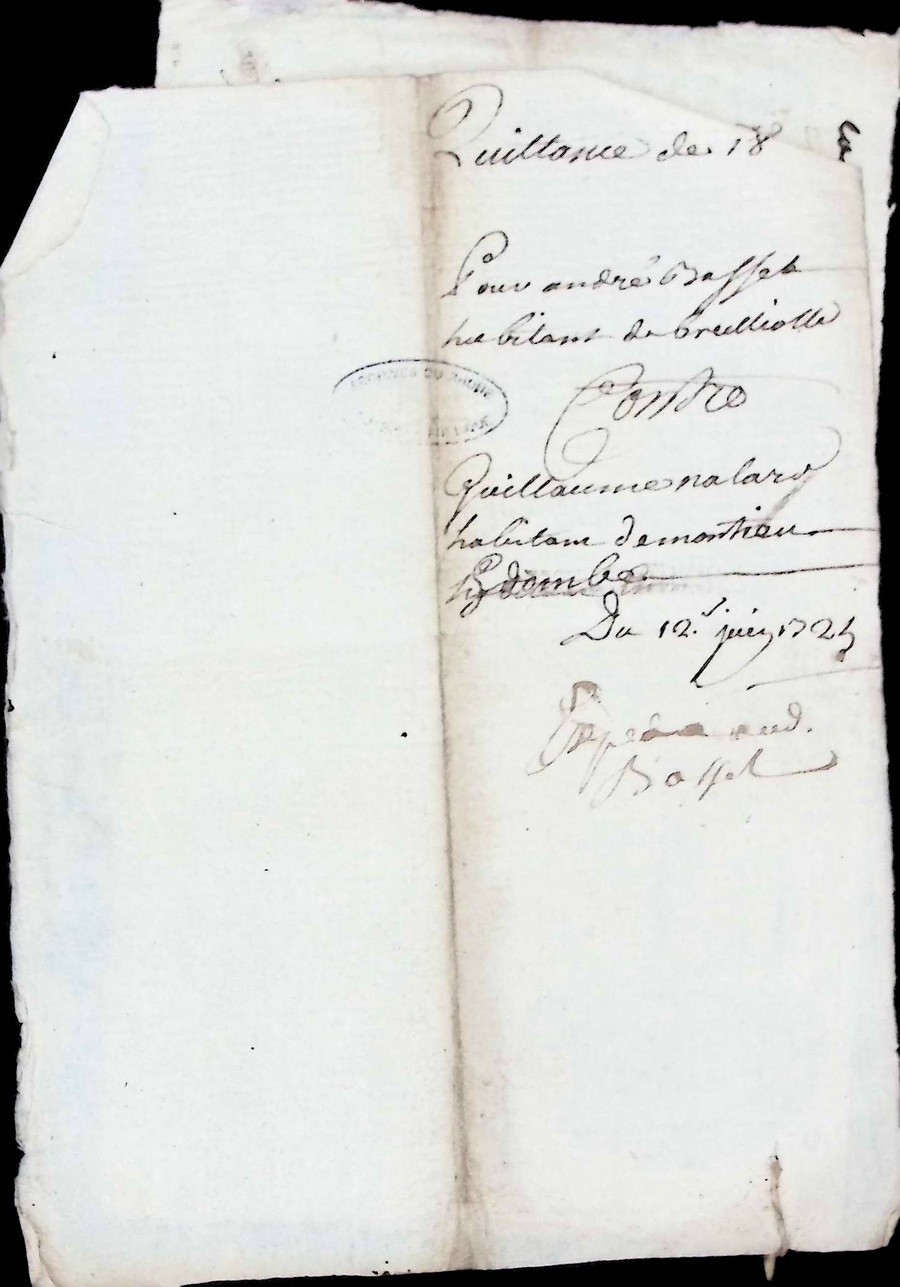 Quittance de 18
Pour andré Basset
habitant de breilliolle
Contre
Guillaume nalard
habitant de montieu
Du 12.e juin 1725
Expedié aud.
Basset
ARCHIVES DU RHONE